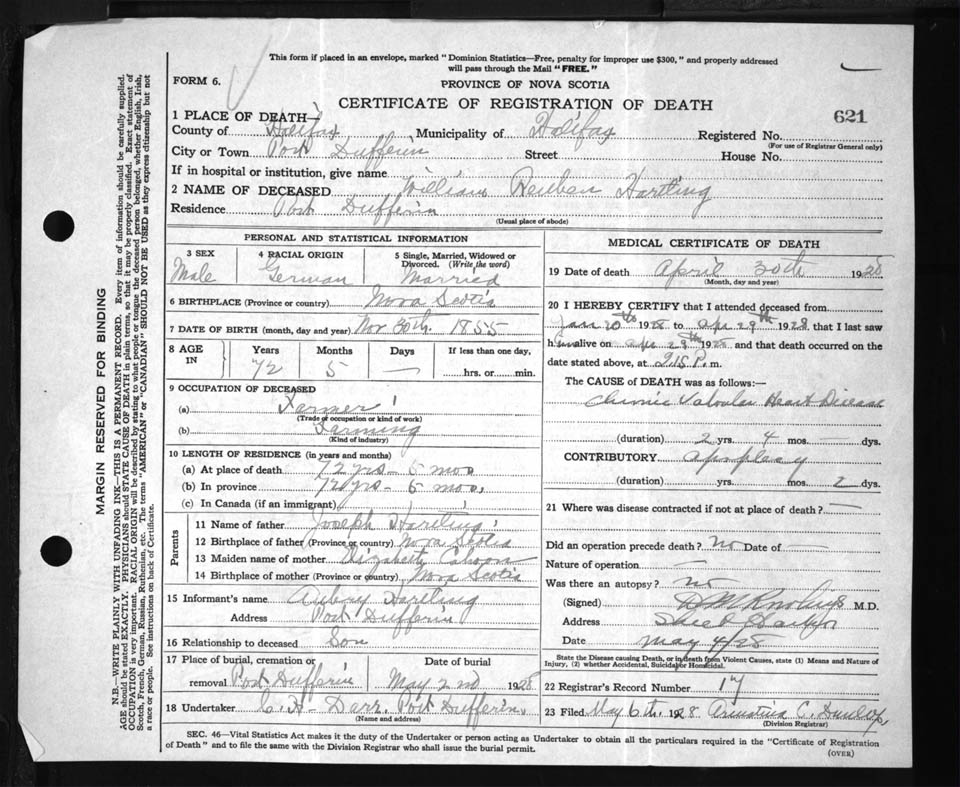 This form if placed in an envelope, marked "Dominion Statistics—Free, penalty for improper use $300," and properly addressed
will pass through the Mail "FREE."
FORM 6.
PROVINCE OF NOVA SCOTIA
CERTIFICATE OF REGISTRATION OF DEATH
621
1 PLACE OF DEATH—
County of Halifax Municipality of Halifax Registered No.
(For use of Registrar General only)
City or Town Port Dufferin Street House No.
If in hospital or institution, give name
2 NAME OF DECEASED William Reuben Hartling
Residence Port Dufferin
(Usual place of abode)
PERSONAL AND STATISTICAL INFORMATION
3 SEX
Male
4 RACIAL ORIGIN
German
5 Single, Married, Widowed or
Divorced. (Write the word)
Married
6 BIRTHPLACE (Province or country) Nova Scotia
7 DATE OF BIRTH (month, day and year) Nov 30th. 1855
8 AGE IN
Years Months Days If less than one day,
72 5 —
hrs. or min.
9 OCCUPATION OF DECEASED
(a) Farmer
(Trade or occupation or kind of work)
(b) Farming
(Kind of industry)
10 LENGTH OF RESIDENCE (in years and months)
(a) At place of death 72 yrs – 5 mos
(b) In province 72 yrs – 5 mos.
(c) In Canada (if an immigrant)
Parents
11 Name of father Joseph Hartling
12 Birthplace of father (Province or country) Nova Scotia
13 Maiden name of mother Elizabeth
14 Birthplace of mother (Province or country) Nova Scotia
15 Informant's name Hartling
Address Port Dufferin
16 Relationship to deceased Son
17 Place of burial, cremation or Date of burial
removal Port Dufferin May 2nd 1928
18 Undertaker C. H. Port Dufferin.
(Name and address)
MEDICAL CERTIFICATE OF DEATH
19 Date of death April 30th 1928
(Month, day and year)
20 I HEREBY CERTIFY that I attended deceased from
Jan 10th 1928 to Apr 29th 1928 that I last saw
him alive on Apr 29th 1928 and that death occurred on the
date stated above, at P. m.
The CAUSE of DEATH was as follows:—
Chronic Valvular Heart Disease
(duration) 2 yrs. 4 mos. — dys.
CONTRIBUTORY apoplexy
(duration) yrs. mos. 2 dys.
21 Where was disease contracted if not at place of death? —
Did an operation precede death? no Date of —
Nature of operation —
Was there an autopsy? no
(Signed) M.D.
Address Sheet Harbor
Date May 4/28
State the Disease causing Death, or in death from Violent Causes, state (1) Means and Nature of
Injury, (2) whether Accidental, Suicidal or Homicidal.
22 Registrar's Record Number 17
23 Filed May 6th, 1928 C. Dunlop
(Division Registrar)
SEC. 46—Vital Statistics Act makes it the duty of the Undertaker or person acting as Undertaker to obtain all the particulars required in the "Certificate of Registration
of Death" and to file the same with the Division Registrar who shall issue the burial permit.
(OVER)
MARGIN RESERVED FOR BINDING
N.B.—WRITE PLAINLY WITH UNFADING INK—THIS IS A PERMANENT RECORD. Every item of information should be carefully supplied.
AGE should be stated EXACTLY. PHYSICIANS should STATE CAUSE OF DEATH in plain terms, so that it may be properly classified. Exact statement of
OCCUPATION is very important. RACIAL ORIGIN will be described by stating to what people or tongue the deceased person belonged, whether English, Irish,
Scotch, French, German, Russian, Ruthenian, etc. The terms "AMERICAN" or "CANADIAN" SHOULD NOT BE USED as they express citizenship but not
a race or people. See instructions on back of Certificate.